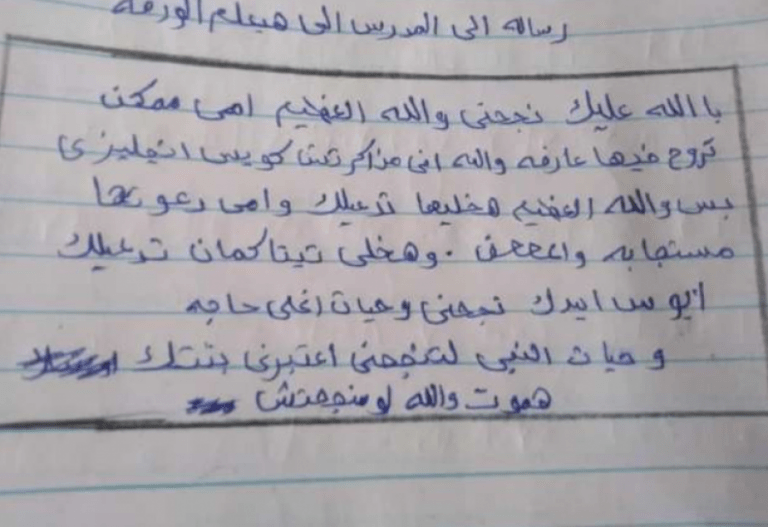 رساله الى المدرس الى هيعلم الورقه
با الله عليك نجحنى والله العظيم امى ممكن
تروح فيها عارفه والله انى مذاكرتش كويس انجليزى
بس والله العظيم هخليها تدعيلك وامى دعوتها
مستجابه والله . وهخلى تيتا كمان تدعيلك
ابوس ايدك نجحنى وحيات اغلى حاجه
و حيات النبى لتنجحنى اعتبرنى بنتك
هموت والله لو منجحتش